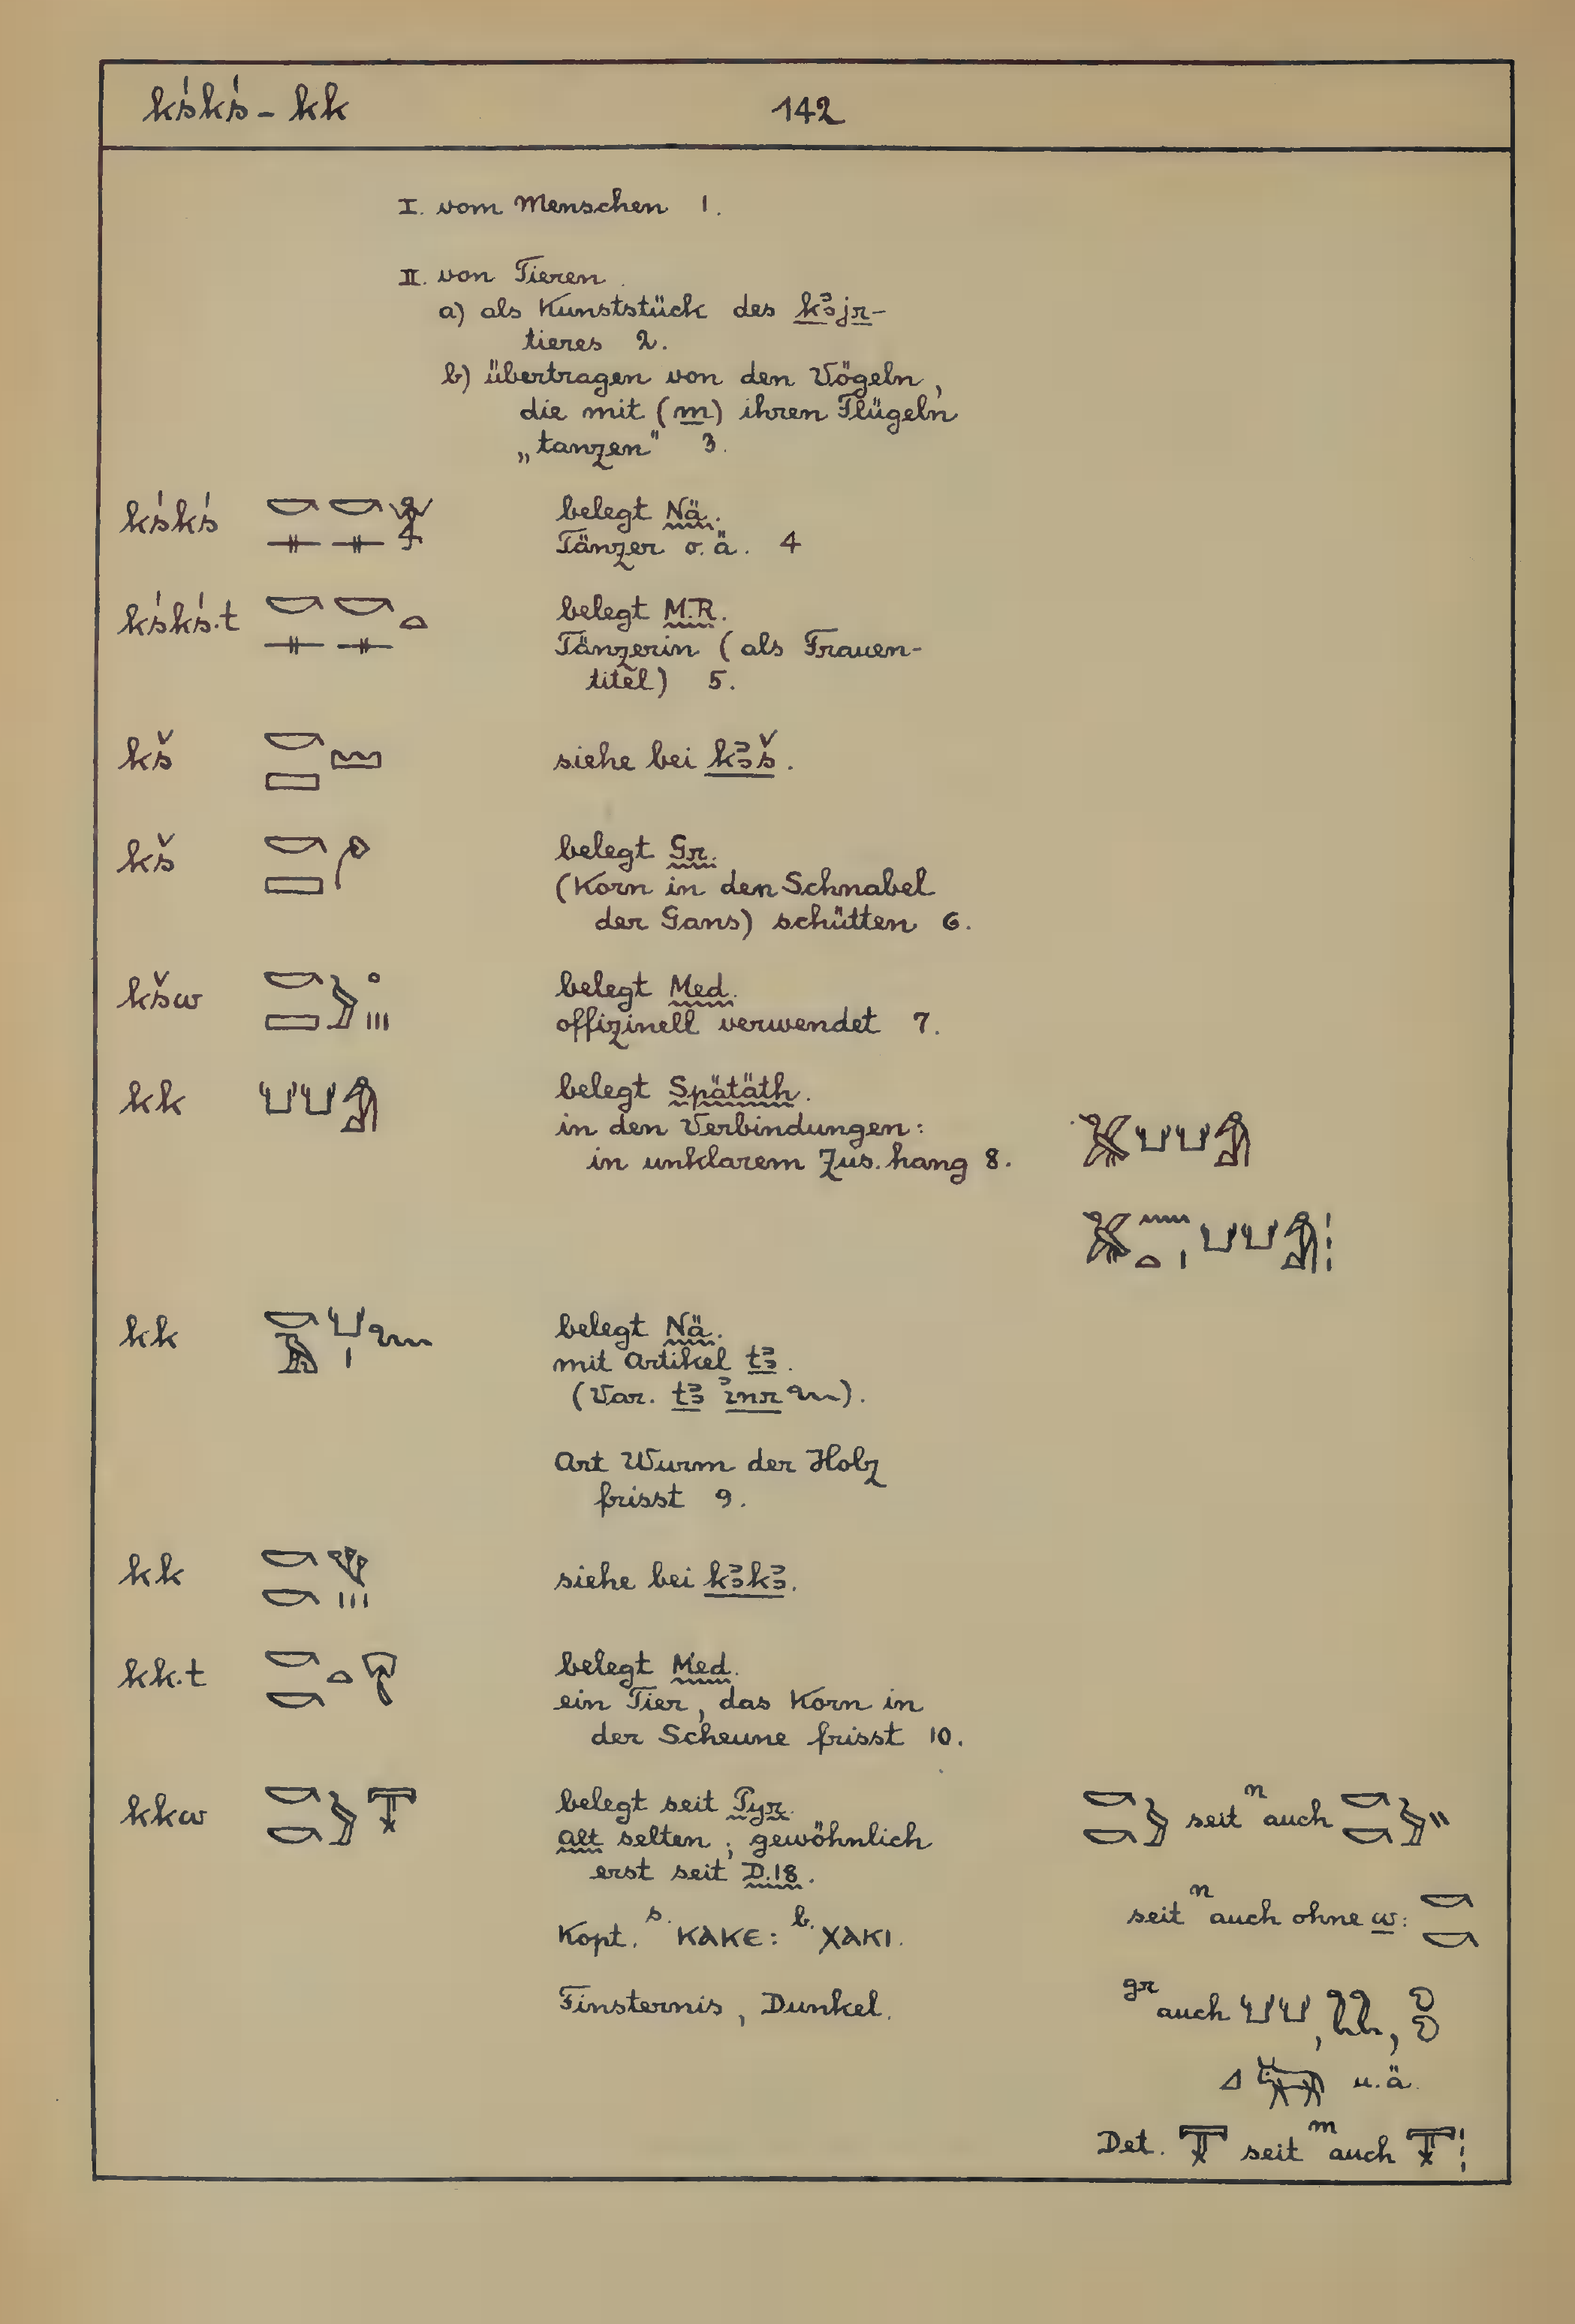 kśkś - kk 142
I. vom Menschen 1.
II. von Tieren.
a) als Kunststück des kꜣjr-
tieres 2.
b) übertragen von den Vögeln,
die mit (m) ihren Flügeln
„tanzen" 3.
kśkś belegt Nä.
Tänzer o.ä. 4
kśkś.t belegt M.R.
Tänzerin (als Frauen-
titel) 5.
kš siehe bei kꜣš.
kš belegt Gr.
(Korn in den Schnabel
der Gans) schütten 6.
kšw belegt Med.
offizinell verwendet 7.
kk belegt Spätäth.
in den Verbindungen:
in unklarem Zus.hang 8.
kk belegt Nä.
mit Artikel tꜣ.
(Var. tꜣ ꞽnr).
Art Wurm der Holz
frisst 9.
kk siehe bei kꜣkꜣ.
kk.t belegt Med.
ein Tier, das Korn in
der Scheune frisst 10.
kkw belegt seit Pyr.
alt selten; gewöhnlich
erst seit D.18.
Kopt. s. ⲕⲁⲕⲉ: b. ⲭⲁⲕⲓ.
Finsternis, Dunkel.
seit n auch
seit n auch ohne w:
gr auch , ,
u.ä.
Det. seit m auch